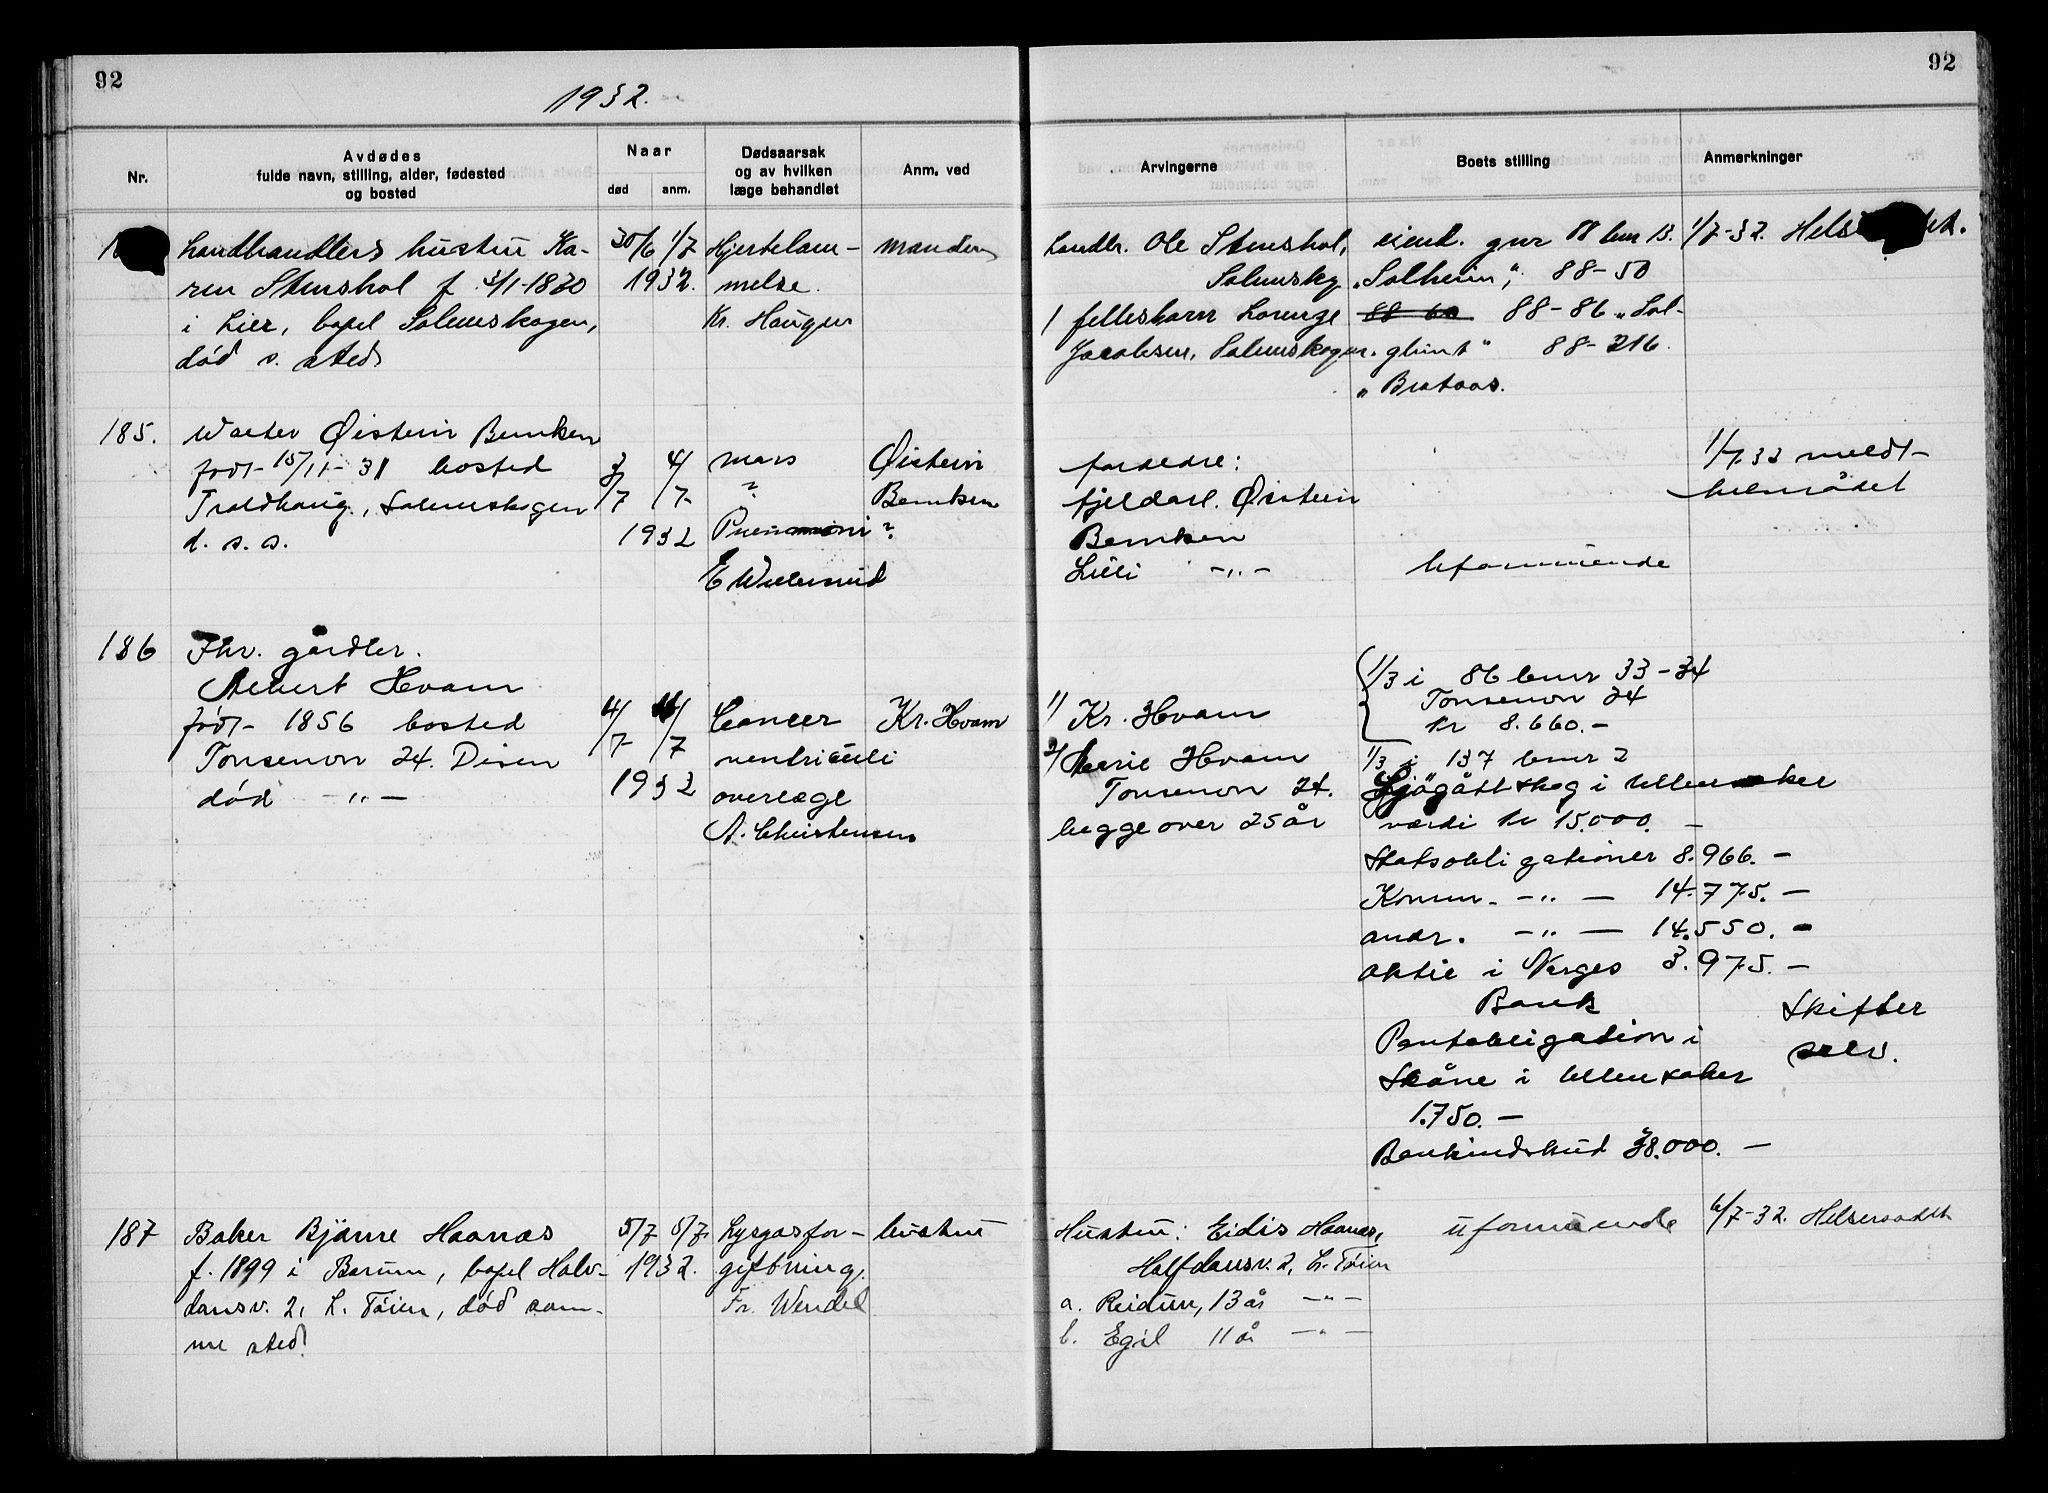 92
92
1932.
Nr.
Avdødes
fulde navn, stilling, alder, fødested
og bosted
Naar
død
anm.
Dødsaarsak
og av hvilken
læge behandlet
Anm. ved
Arvingerne
Boets stilling
Anmerkninger
Landhandlers hustru Ka-
ren Stenshol f.
i Lier, bopel Solemskogen,
død s. sted
30/6 1/7
1932.
Hjertelam-
melse.
Kr. Haugen
manden
Landh. Ole Stenshol,
Solemskg.
1 felleskarn
Jacobsen, Solemskogen.
eiend. gnr 88 bnr 13.
"Solheim", 88-50
88-86 "Sol-
glimt" 88-216.
"Brataas.
1/7-32.
185.
Øistein Bemken
født 15/11-31 bosted
Troldhaug, Solemskogen
d. s. s.
3/7 4/7
1932
mors
?
?
Øistein
Bemken
foreldre:
fjeldarb. Øistein
Bemken
Lilli -"-
Uformuende
1/7.32 meldt
helserådet
186
Fhv. gårdbr.
Albert Hvam
født 1856 bosted
Tonsenvn 24. Disen
død -"-
4/7
/7
1932
Cancer
ventriculi
overlæge
A. Christensen
Kr. Hvam
1) Kr. Hvam
2) Marie Hvam
Tonsenvn 24.
begge over 25 år
1/3 i 86 bnr 33-34
Tonsenvn 24
kr 8.660.-
1/3 i 137 bnr 2
skog i Ullensaker
værdi kr 15.000.-
Statsobligationer 8.966.-
Komm. -"- 14.775.-
andr. -"- 14.550.-
Aktie i Norges 3.975.-
Bank
Pantobligation i
Skåne i Ullensaker
1.750.-
Bankindskud 38.000.-
Skifter
selv.
187
Baker Bjarne Haanæs
f. 1899 i Bærum, bopel Halv-
dansv. 2, L. Tøien, død sam-
me sted
5/7 5/7
1932.
Lysgasfor-
giftning.
Fr. Wendel
hustru
Hustru: Eidis Haanæs,
Halfdansv. 2, L. Tøien
a. Reidun, 13 år -"-
b. Egil 11 år -"-
uformuende
6/7-32. Helseraadet